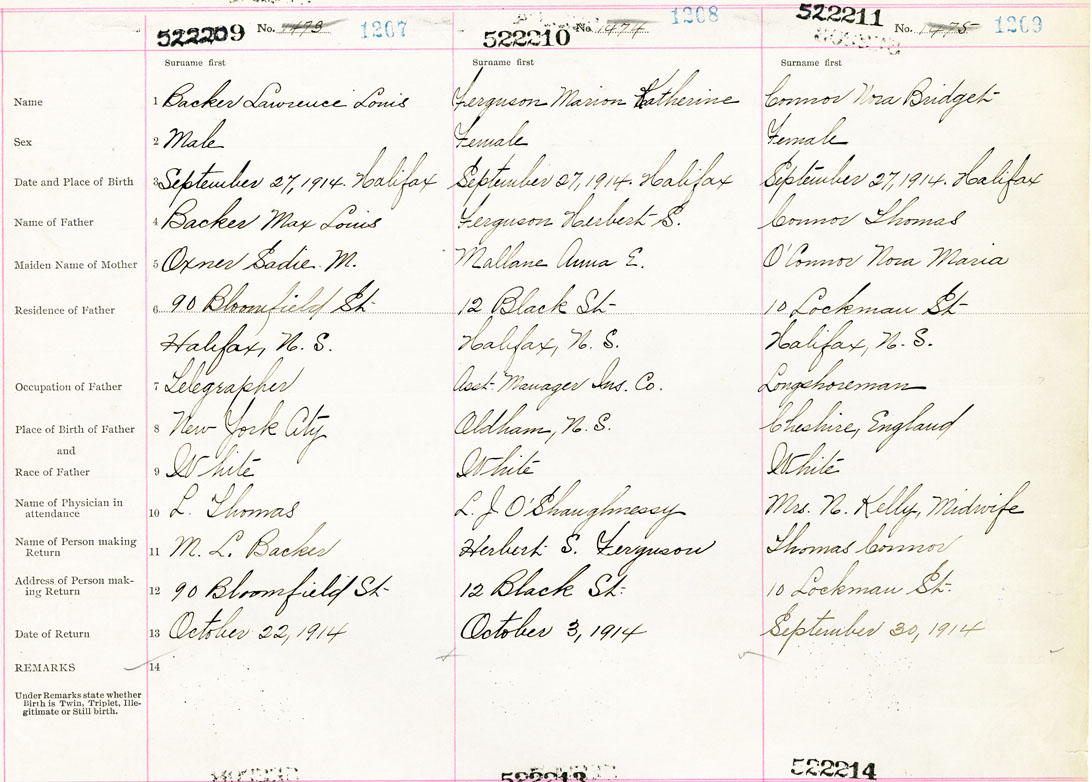 522209 No. 1473 1207 522210 No. 1474 1208 522211 No. 1475 1209
Surname first Surname first Surname first
Name 1 Backer Lawrence Louis Ferguson Marion Katherine Connor Nora Bridget
Sex 2 Male Female Female
Date and Place of Birth 3 September 27, 1914. Halifax September 27, 1914. Halifax September 27, 1914. Halifax
Name of Father 4 Backer Max Louis Ferguson Herbert S. Connor Thomas
Maiden Name of Mother 5 Oxner Sadie M. Mallane Anna E. O'Connor Nora Maria
Residence of Father 6 90 Bloomfield St 12 Black St 10 Lockman St
Halifax, N. S. Halifax, N. S. Halifax, N. S.
Occupation of Father 7 Telegrapher Asst. Manager Ins. Co. Longshoreman
Place of Birth of Father 8 New York City Oldham, N.S. Cheshire, England
and
Race of Father 9 White White White
Name of Physician in
attendance 10 L. Thomas L. J. O'Shaughnessy Mrs. N. Kelly, Midwife
Name of Person making
Return 11 M. L. Backer Herbert S. Ferguson Thomas Connor
Address of Person mak-
ing Return 12 90 Bloomfield St. 12 Black St. 10 Lockman St.
Date of Return 13 October 22, 1914 October 3, 1914 September 30, 1914
REMARKS 14
Under Remarks state whether
Birth is Twin, Triplet, Ille-
gitimate or Still birth.
522213 522214